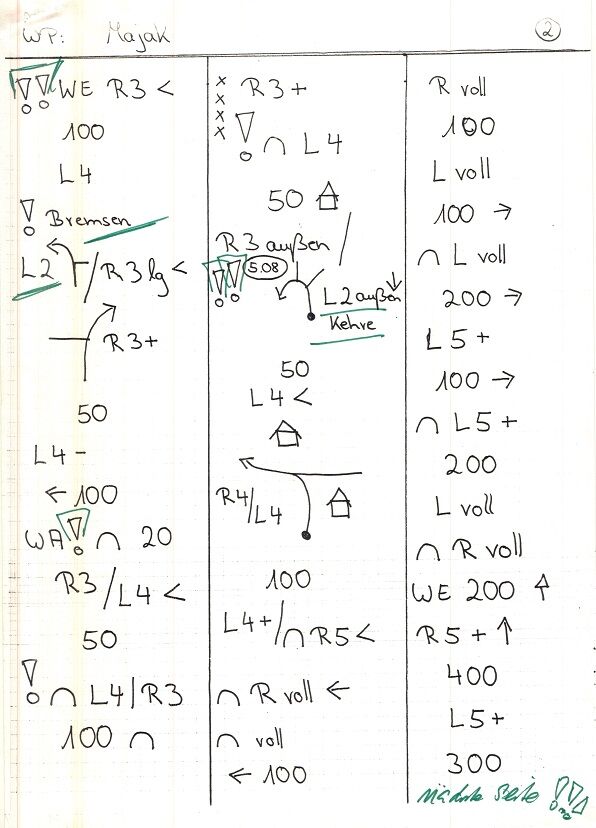 WP: Majak
2
!! WE R3 <
100
L4
! Bremsen
L2 / R3 lg <
R3+
50
L4-
← 100
WA ! ∩ 20
R3/L4 <
50
! ∩ L4/R3
100 ∩
x x x x R3+
! ∩ L4
50
R3 außen /
!! 5.08 L2 außen ↓
Kehre
50
L4 <
R4/L4
100
L4+/∩ R5 <
∩ R voll ←
∩ voll
← 100
R voll
100
L voll
100 →
∩ L voll
200 →
L5+
100 →
∩ L5+
200
L voll
∩ R voll
WE 200 ↑
R5+ ↑
400
L5+
300
nächste Seite !!!